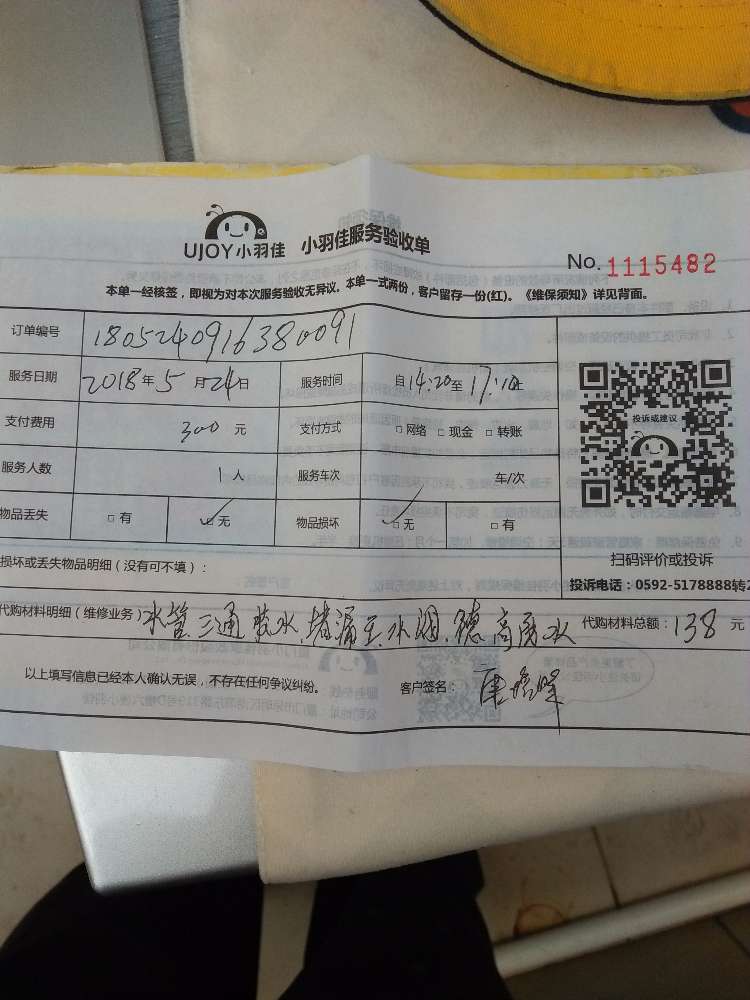 UJOY小羽佳 小羽佳服务验收单
No. 1115482
本单一经核签，即视为对本次服务验收无异议。本单一式两份，客户留存一份(红)。《维保须知》详见背面。
订单编号 1805240916380091
服务日期 2018年5月24日 服务时间 自14:20至17:10止
支付费用 300元 支付方式 □网络 □现金 □转账
服务人数 1人 服务车次 车/次
投诉或建议
物品丢失 □有 ☑无 物品损坏 ☑无 □有
扫码评价或投诉
损坏或丢失物品明细（没有可不填）：
投诉电话：0592-5178888转2
代购材料明细（维修业务） 水管、三通 防水 堵漏王、水 德高防水 代购材料总额：138元
以上填写信息已经本人确认无误，不存在任何争议纠纷。 客户签名：